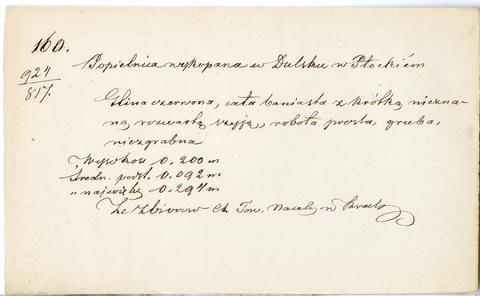 160.
924
817.
Popielnica wykopana w Dulsku w Płockiém
Glina czerwona, cała baniasta z krótką nieznacz-
ną rozwartą szyją, robota prosta, gruba,
niezgrabna
Wysokość 0.200 m
Średn. podst. 0.092 m
" najwięk. 0.294 m
Ze zbiorów Tow. Nauk. w Krak.